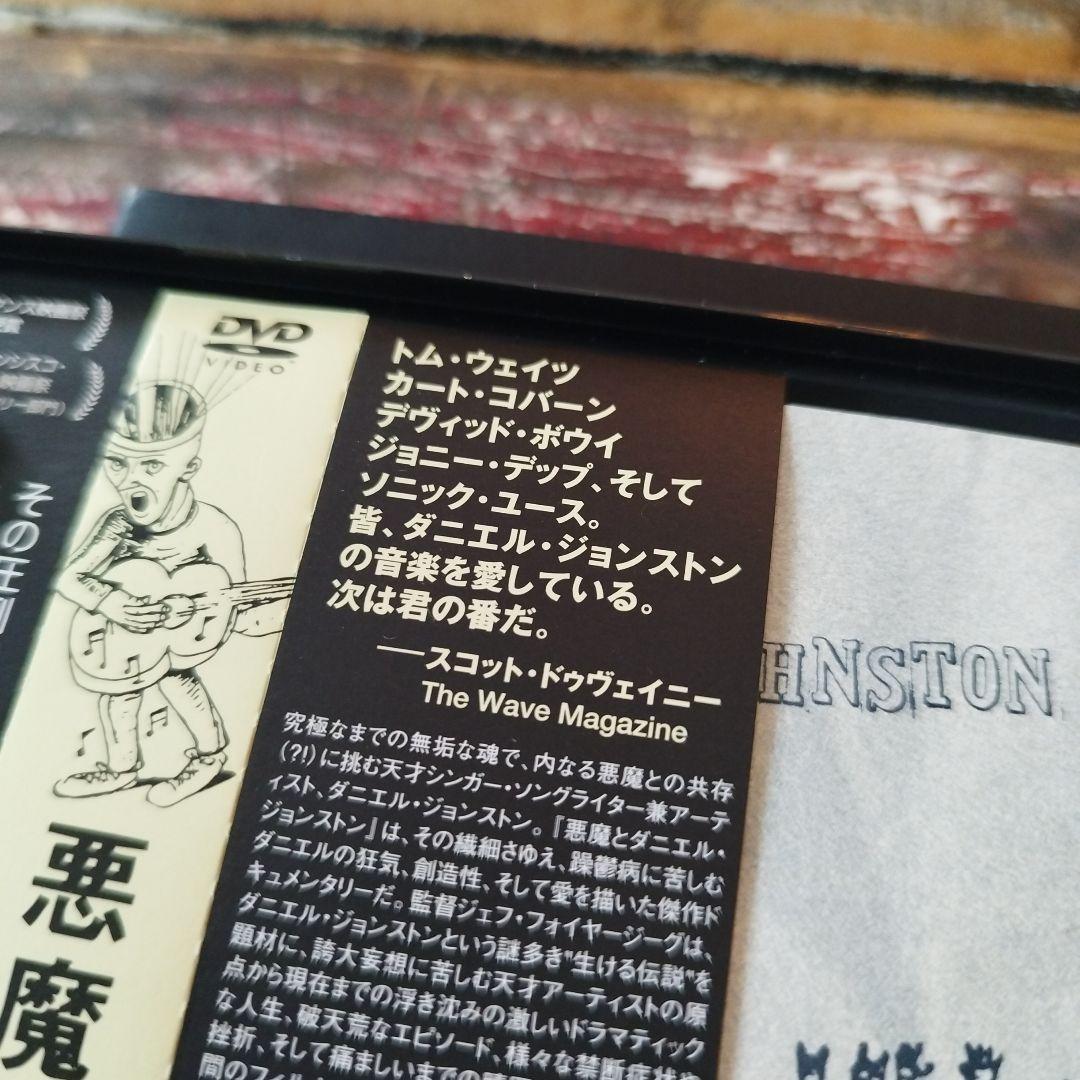 DVD
VIDEO
トム・ウェイツ
カート・コバーン
デヴィッド・ボウイ
ジョニー・デップ、そして
ソニック・ユース。
皆、ダニエル・ジョンストン
の音楽を愛している。
次は君の番だ。
──スコット・ドゥヴェイニー
The Wave Magazine
究極なまでの無垢な魂で、内なる悪魔との共存
(?!)に挑む天才シンガー・ソングライター兼アーテ
ィスト、ダニエル・ジョンストン。『悪魔とダニエル・
ジョンストン』は、その繊細さゆえ、躁鬱病に苦しむ
ダニエルの狂気、創造性、そして愛を描いた傑作ド
キュメンタリーだ。監督ジェフ・フォイヤージーグは、
ダニエル・ジョンストンという謎多き"生ける伝説"を
題材に、誇大妄想に苦しむ天才アーティストの原
点から現在までの浮き沈みの激しいドラマティック
な人生、破天荒なエピソード、様々な禁断症状や
挫折、そして痛ましいまでの
間のフィル
悪魔
その圧倒
HNSTON